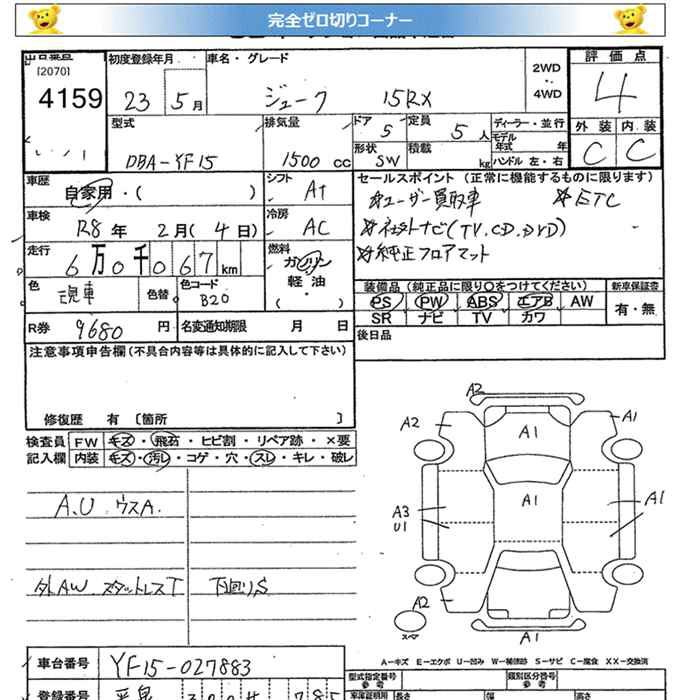 完全ゼロ切りコーナー
[2070]
4159
初度登録年月
23 5月
車名・グレード
ジューク 15RX
2WD
・・
4WD
評価点
4
外装 内装
C C
型式
DBA-YF15
排気量
1500 cc
ドア 5
定員 5人
形状 SW
積載 kg
ディーラー・並行
モデル年式 年
ハンドル 左・右
車歴
自家用・( )
シフト
AT
車検
R8年 2月(4日)
冷房
AC
走行
6万0千067km
燃料
ガソリン
軽油
・
( )
色
色替
色コード
B20
R券 9680円
名変通知期限 月 日
セールスポイント (正常に機能するものに限ります)
☆ユーザー買取車 ☆ETC
☆社外ナビ(TV.CD.DVD)
☆純正フロアマット
装備品(純正品に限り○をつけてください)
新車保証書
PS PW ABS エアB AW
SR ナビ TV カワ
有・無
後日品
注意事項申告欄(不具合内容等は具体的に記入して下さい)
修復歴 有 〔箇所 〕
検査員 FW キズ・飛石・ヒビ割・リペア跡・×要
記入欄 内装 キズ・汚れ・コゲ・穴・スレ・キレ・破レ
A.U ウスA.
外AW スタットレスT 下回りS
A2
A2
A1
A1
A1
A3
U1
A1
A2
A1
スペア
A1
A-キズ E-エクボ U-凹み W-補修跡 S-サビ C-腐食 XX-交換済
車台番号 YF15-027883
型式指定番号
参考
類別区分番号
参考
登録番号
車庫証明用 長さ 幅 高さ